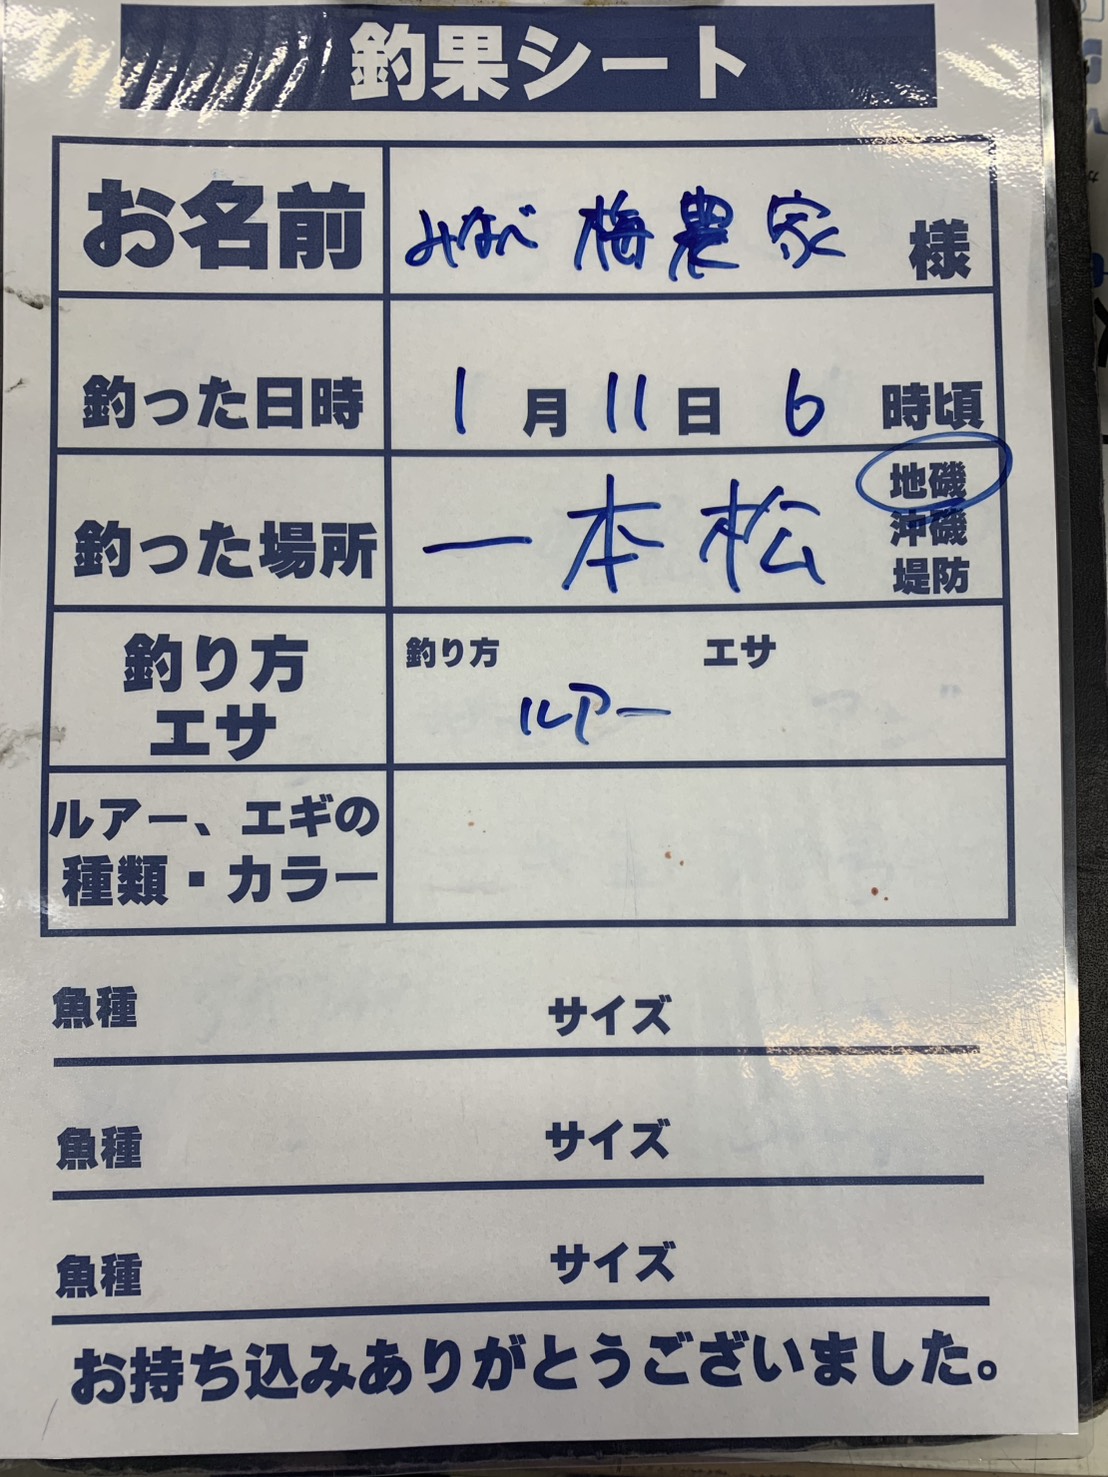 釣果シート
お名前 みなべ 梅農家 様
釣った日時 1月11日 6時頃
釣った場所 一本松 地磯
沖磯
堤防
釣り方 エサ
釣り方
エサ
ルアー
ルアー、エギの
種類・カラー
魚種 サイズ
魚種 サイズ
魚種 サイズ
お持ち込みありがとうございました。